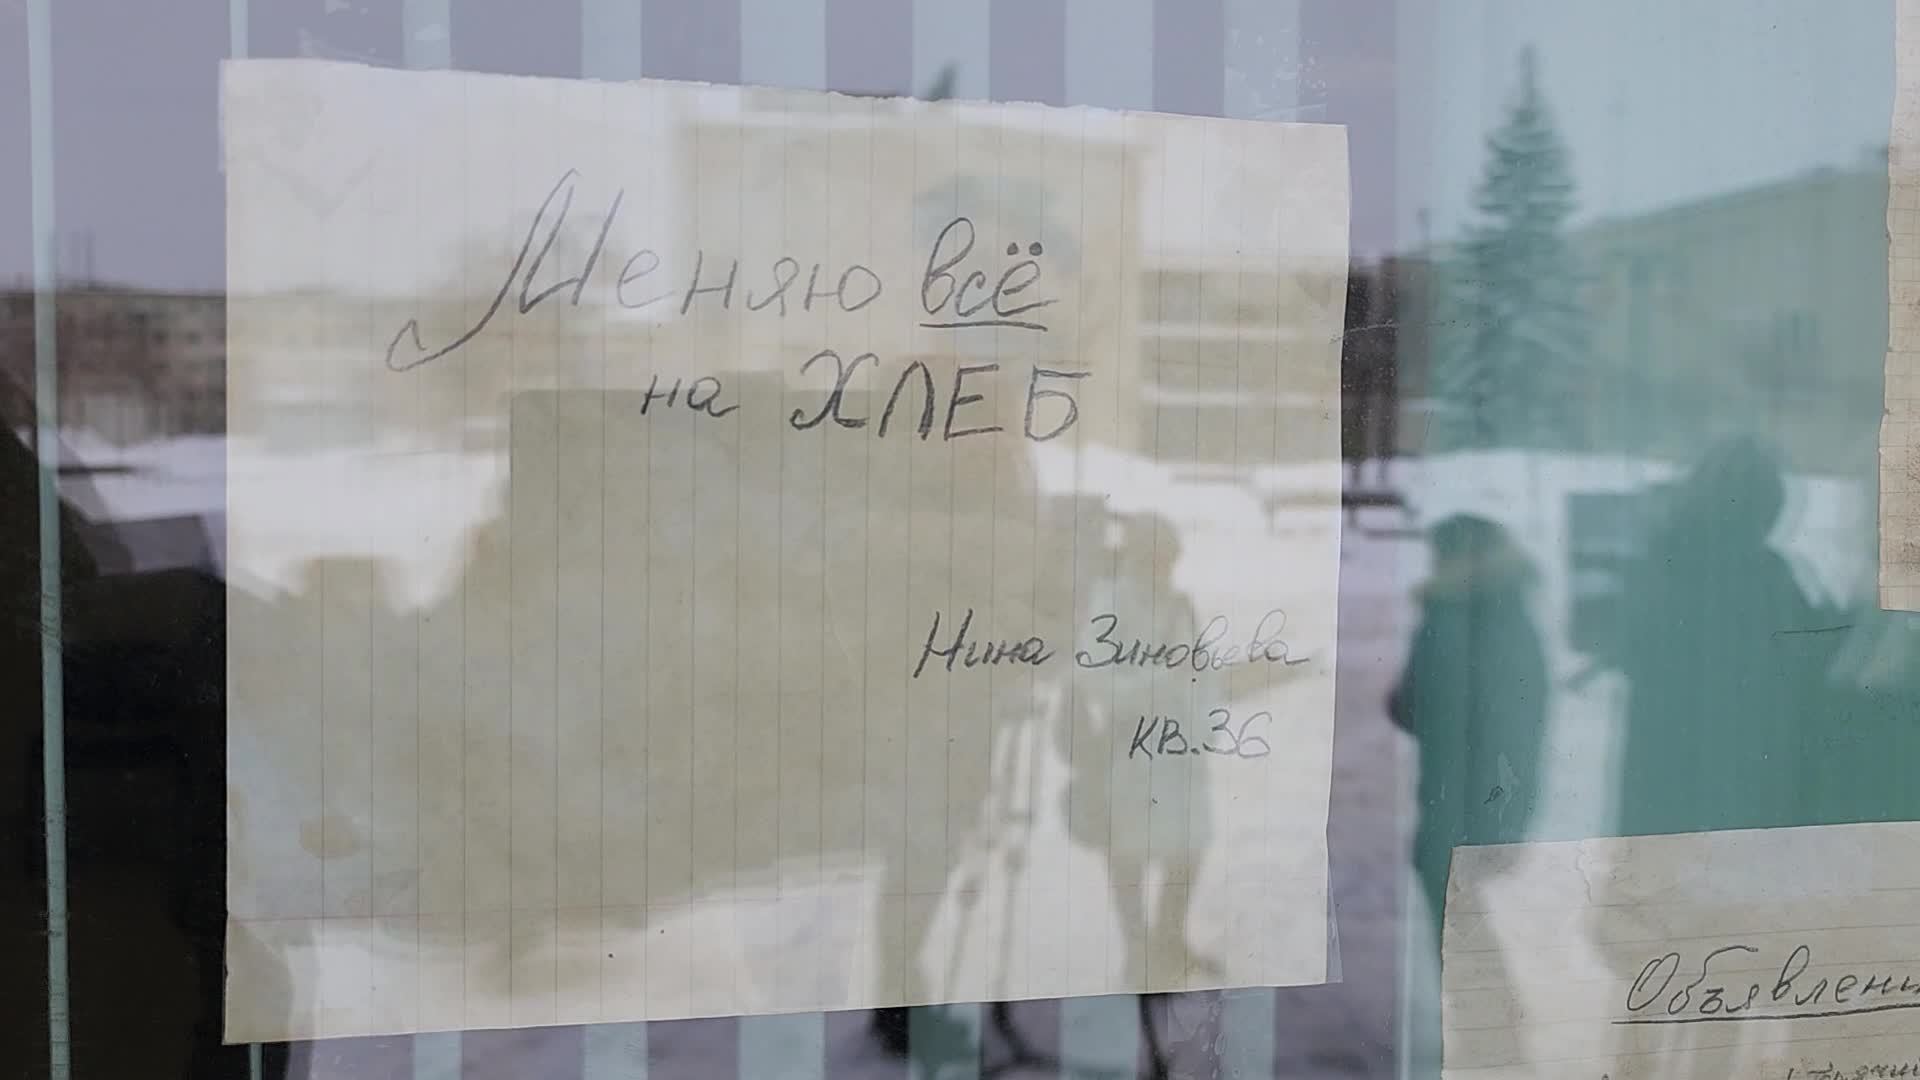 Меняю всё
на ХЛЕБ
Нина Зиновьева
кв.36
Объявлени